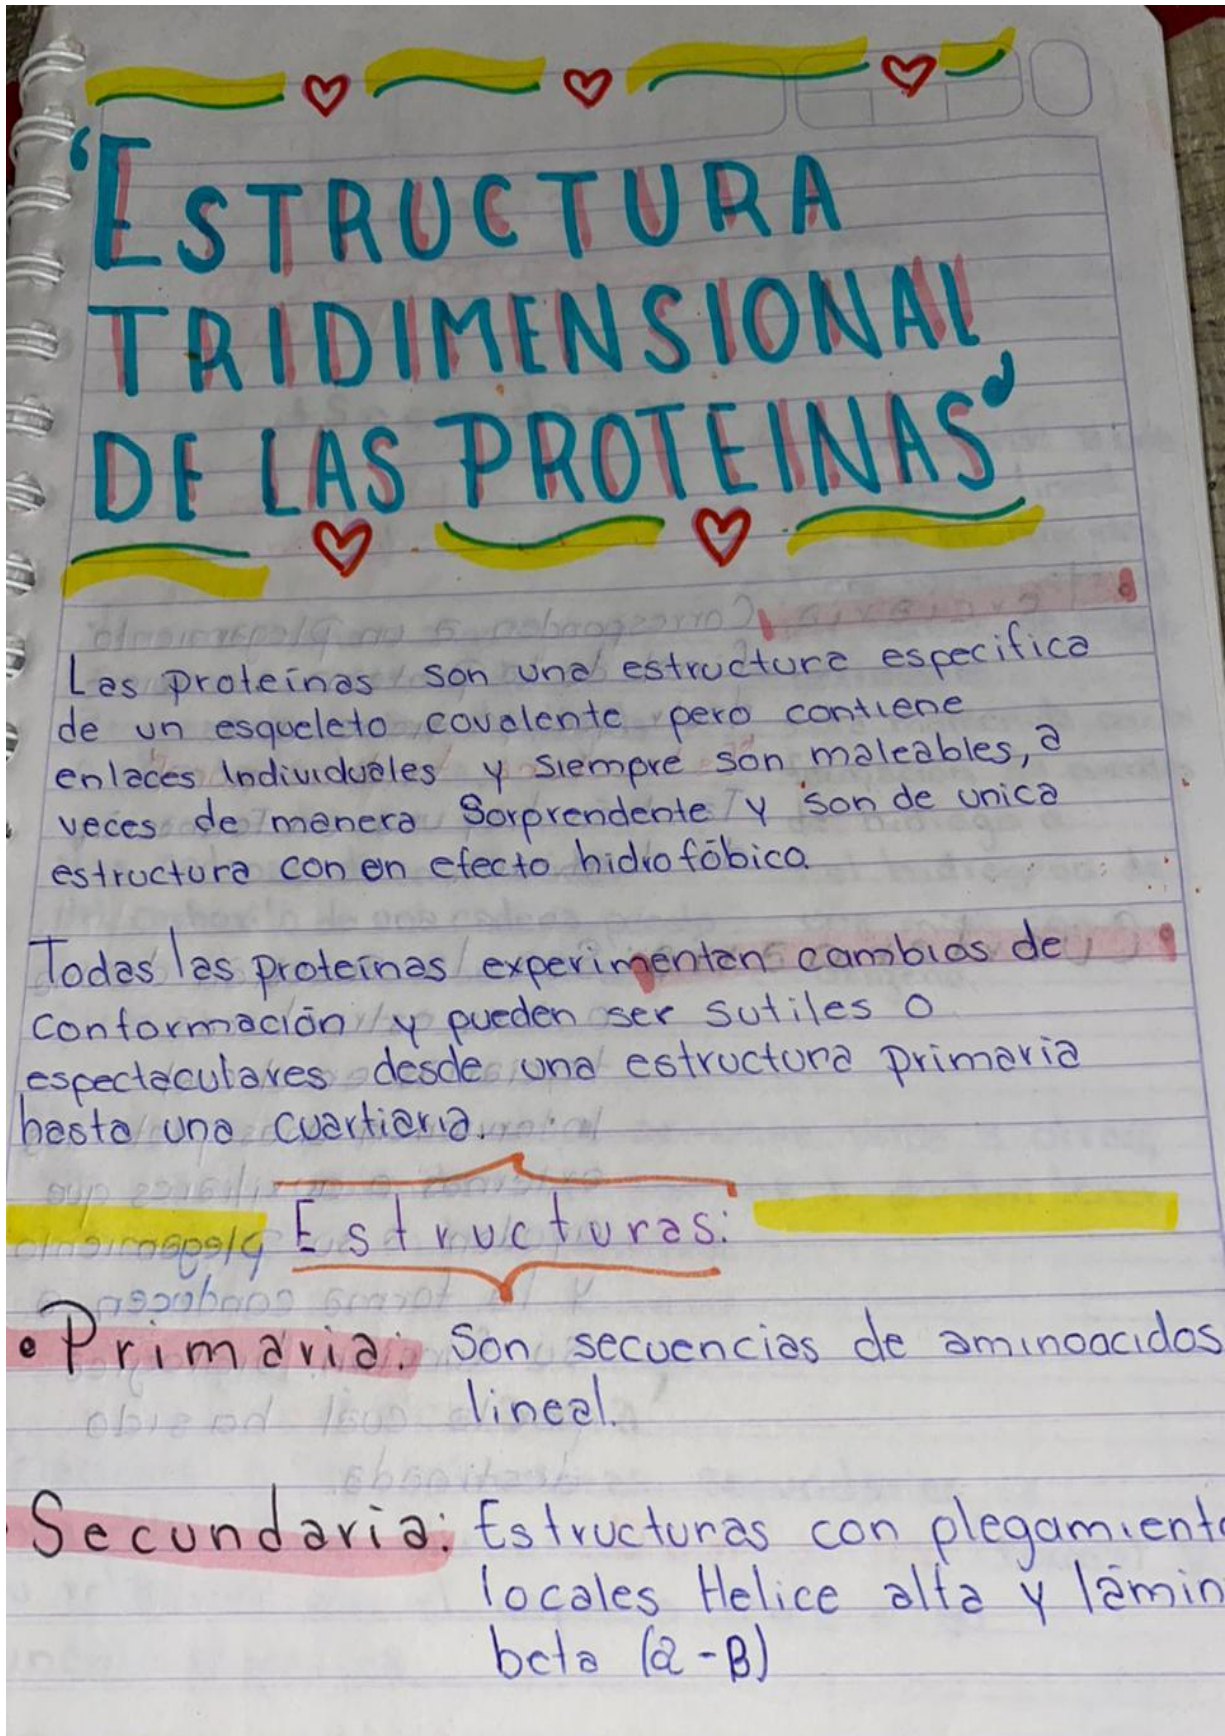 "ESTRUCTURA
TRIDIMENSIONAL
DE LAS PROTEINAS"
Las proteínas son una estructura especifica
de un esqueleto covalente pero contiene
enlaces Individuales y siempre son maleables, a
veces de manera sorprendente y son de unica
estructura con en efecto hidrofóbico
Todas las proteínas experimentan cambios de
conformación y pueden ser sutiles o
espectaculares desde una estructura primaria
hasta una cuartiaria.
Estructuras:
• Primaria: Son secuencias de aminoacidos
lineal.
· Secundaria: Estructuras con plegamiento
locales Helice alfa y lámin
beta (α-β)